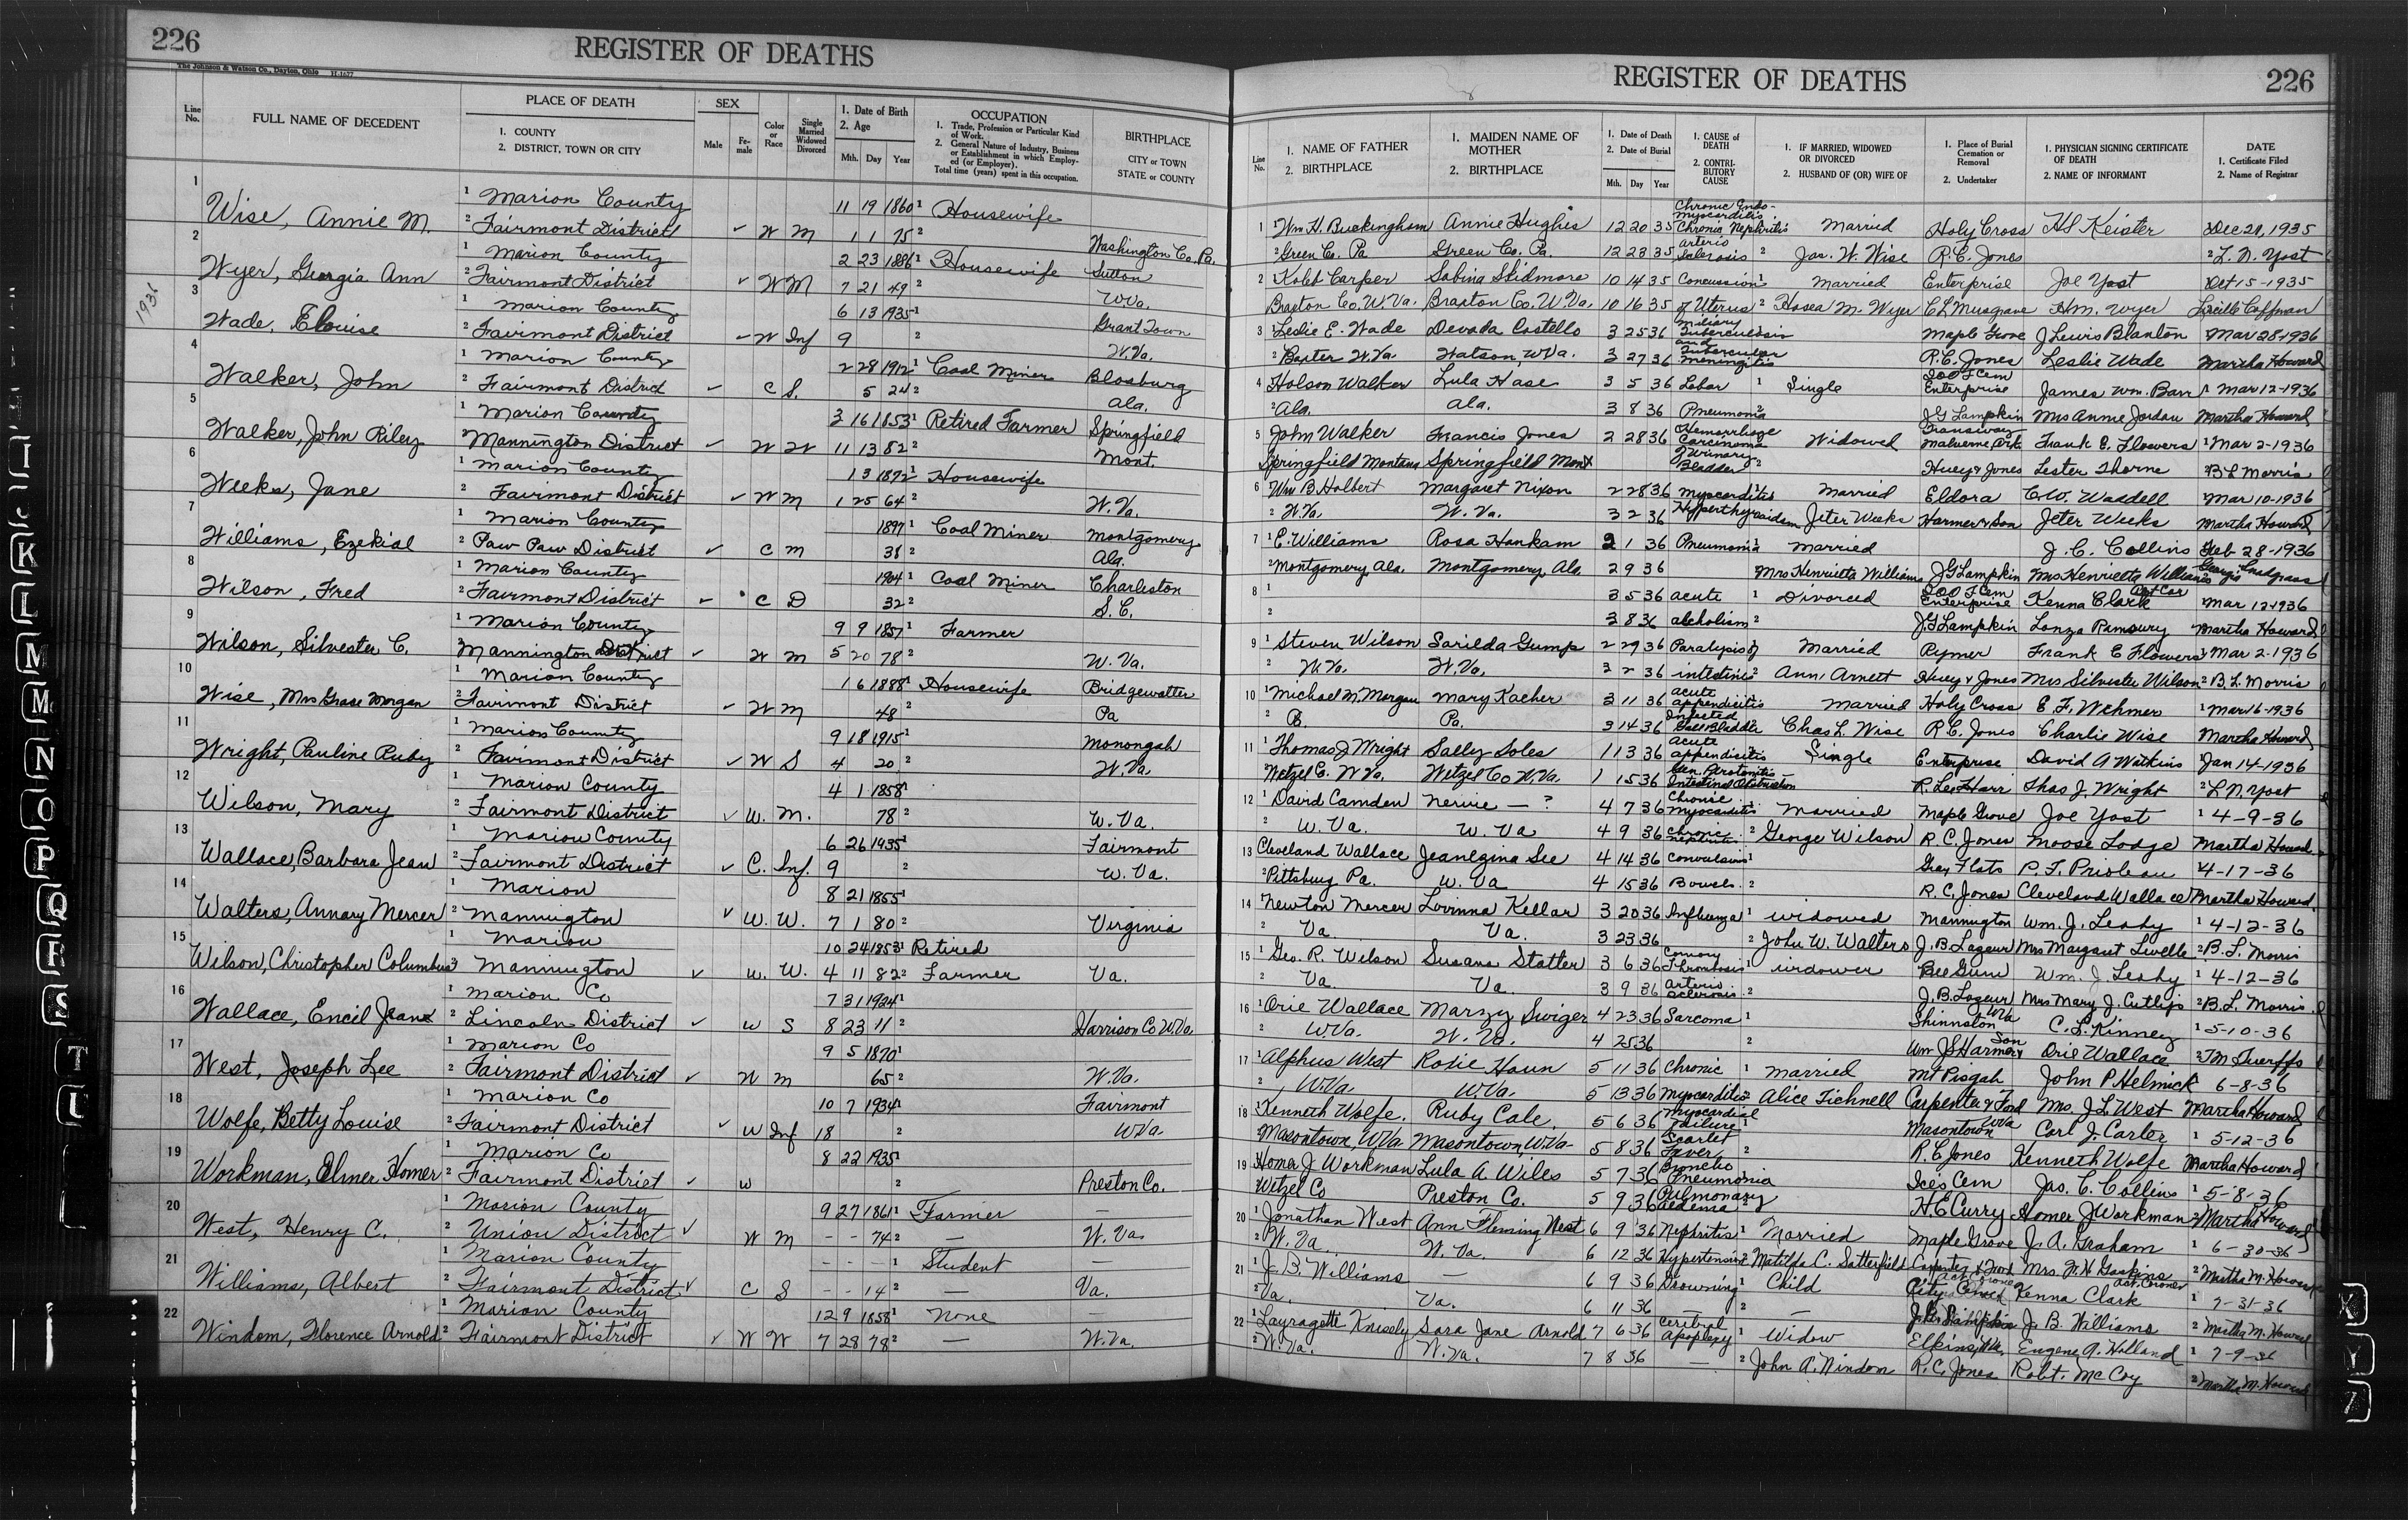 226
REGISTER OF DEATHS
The Johnson & Watson Co., Dayton, Ohio H-1677
Line No. FULL NAME OF DECEDENT PLACE OF DEATH SEX Color or Race Single Married Widowed Divorced 1. Date of Birth 2. Age OCCUPATION BIRTHPLACE
1. COUNTY 2. DISTRICT, TOWN OR CITY Male Female Mth. Day Year 1. Trade, Profession or Particular Kind of Work. 2. General Nature of Industry, Business or Establishment in which Employed (or Employer). Total time (years) spent in this occupation. CITY or TOWN STATE or COUNTY
1936
1 1 Marion County 11 19 1860 1 Housewife
Wise, Annie M. 2 Fairmont District ✓ W M 1 1 75 2 Washington Co. Pa.
2 1 Marion County 2 23 1886 1 Housewife Sutton
Wyer, Georgia Ann 2 Fairmont District ✓ W M 7 21 49 2 W.Va.
3 1 Marion County 6 13 1935 1 Grant Town
Wade, Elouise 2 Fairmont District ✓ W Inf 9 2 W.Va.
4 1 Marion County 2 28 1912 1 Coal Miner Blosburg
Walker, John 2 Fairmont District ✓ C S. 5 24 2 Ala.
5 1 Marion County 3 16 1853 1 Retired Farmer Springfield
Walker, John Riley 2 Mannington District ✓ W W 11 13 82 2 Mont.
6 1 Marion County 1 3 1892 1 Housewife
Weeks, Jane 2 Fairmont District ✓ W M 1 25 64 2 W.Va.
7 1 Marion County 1897 1 Coal Miner Montgomery
Williams, Ezekial 2 Paw Paw District ✓ C M 38 2 Ala.
8 1 Marion County 1904 1 Coal Miner Charleston
Wilson, Fred 2 Fairmont District ✓ C D 32 2 S.C.
9 1 Marion County 9 9 1857 1 Farmer
Wilson, Silvester C. 2 Mannington District ✓ W M 5 20 78 2 W.Va.
10 1 Marion County 1 6 1888 1 Housewife Bridgewatter
Wise, Mrs Grase Morgan 2 Fairmont District ✓ W M 48 2 Pa
11 1 Marion County 9 18 1915 1 Monongah
Wright, Pauline Ruby 2 Fairmont District ✓ W S 4 20 2 W.Va
12 1 Marion County 4 1 1858 1
Wilson, Mary 2 Fairmont District ✓ W. M. 78 2 W.Va.
13 1 Marion County 6 26 1935 1 Fairmont
Wallace, Barbara Jean 2 Fairmont District ✓ C. Inf. 9 2 W.Va.
14 1 Marion 8 21 1855 1
Walters, Annary Mercer 2 Mannington ✓ W. W. 7 1 80 2 Virginia
15 1 Marion 10 24 1853 1 Retired
Wilson, Christopher Columbus 2 Mannington ✓ W. W. 4 11 82 2 Farmer Va.
16 1 Marion Co 7 31 1924 1
Wallace, Encil Jean 2 Lincoln District ✓ W S 8 23 11 2 Harrison Co W.Va.
17 1 Marion Co 9 5 1870 1
West, Joseph Lee 2 Fairmont District ✓ W M 65 2 W.Va.
18 1 Marion Co 10 7 1934 1 Fairmont
Wolfe, Betty Louise 2 Fairmont District ✓ W Inf 18 2 W.Va.
19 1 Marion Co 8 22 1935 1
Workman, Elmer Homer 2 Fairmont District ✓ W 2 Preston Co.
20 1 Marion County 9 27 1861 1 Farmer —
West, Henry C. 2 Union District ✓ W M - - 74 2 — W.Va.
21 1 Marion County - - - 1 Student —
Williams, Albert 2 Fairmont District ✓ C S - - 14 2 — Va.
22 1 Marion County 12 9 1858 1 None —
Windom, Florence Arnold 2 Fairmont District ✓ W W 7 28 78 2 — W.Va.
REGISTER OF DEATHS
226
Line No. 1. NAME OF FATHER 2. BIRTHPLACE 1. MAIDEN NAME OF MOTHER 2. BIRTHPLACE 1. Date of Death 2. Date of Burial Mth. Day Year 1. CAUSE of DEATH 2. CONTRIBUTORY CAUSE 1. IF MARRIED, WIDOWED OR DIVORCED 2. HUSBAND OF (OR) WIFE OF 1. Place of Burial Cremation or Removal 2. Undertaker 1. PHYSICIAN SIGNING CERTIFICATE OF DEATH 2. NAME OF INFORMANT DATE 1. Certificate Filed 2. Name of Registrar
1 1 Wm H. Buckingham Annie Hughis 12 20 35 Chronic Endo-myocarditis Chronic Nephritis Married Holy Cross H S Keister Dec 21, 1935
2 Green Co. Pa Green Co. Pa. 12 23 35 Arterio Sclerosis 2 Jas. W. Wise R.C. Jones 2 L. N. Yost
2 Kolet Carper Sabina Skidmore 10 14 35 Concussion 1 Married Enterprise Joe Yost Oct 15-1935
Braxton Co. W.Va. Braxton Co. W.Va. 10 16 35 of Uterus 2 Hosea M. Wyer C L Musgrave H.M. Wyer Lucille Coffman
3 1 Leslie E. Wade Devada Costello 3 25 36 Miliary Tuberculosis Maple Grove J Lewis Blanton Mar 28-1936
2 Baxter W.Va. Watson, W.Va. 3 27 36 and Tubercular Meningitis R.C. Jones Leslie Wade Martha Howard
4 Holson Walker Lula Hase 3 5 36 Lobar 1 Single IOOF Cem Enterprise James Wm. Barr 1 Mar 12-1936
2 Ala. Ala. 3 8 36 Pneumonia 2 J G Lampkin Mrs Annie Jordan Martha Howard
5 John Walker Francis Jones 2 28 36 Hemorrhage Carcinoma Widowed Malverne Ark. Frank E. Flowers 1 Mar 2-1936
Springfield Montana Springfield Mont Urinary Bladder 2 Huey & Jones Lester Thorne 2 B L Morris
6 Wm B. Holbert Margaret Nixon 2 28 36 Myocarditis Married Eldora C.W. Waddell Mar 10-1936
2 W.Va. W.Va. 3 2 36 Hyperthyroidism Jeter Weeks Harmer & Son Jeter Weeks Martha Howard
7 1 E. Williams Rosa Hankam 2 1 36 Pneumonia 1 Married J. C. Collins Feb 28-1936
2 Montgomery Ala. Montgomery Ala. 2 9 36 2 Mrs Henrietta Williams J G Lampkin Mrs Henrietta Williams
8 1 3 5 36 Acute 1 Divorced IOOF Cem Enterprise Kenna Clark Act Cor 1 Mar 12-1936
2 3 8 36 Alcholism 2 J. G Lampkin Lonza Martha Howard
9 1 Steven Wilson Sarilda Gump 2 29 36 Paralysis of Married Rymer Frank E Flowers 1 Mar 2-1936
2 W.Va. W.Va. 3 2 36 intestine 2 Ann Arnett Huey & Jones Mrs Silvester Wilson 2 B. L. Morris
10 1 Michael M. Morgan Mary Kacher 3 11 36 Acute appendicitis Married Holy Cross E. F. Wehmer 1 Mar 16-1936
2 Pa. Pa. 3 14 36 Infected Gall Bladder Chas L. Wise R C. Jones Charlie Wise Martha Howard
11 1 Thomas J Wright Sally Soles 1 13 36 Acute appendicitis Single Enterprise David A Watkins Jan 14-1936
2 Wetzel C. W.Va. Wetzel Co W.Va. 1 15 36 Gen. Peretonitis Intestinal Obstruction R. Lee Harr Thos J. Wright 2 L N. Yost
12 1 David Camden Nervie — ? 4 7 36 Chronic Myocarditis Married Maple Grove Joe Yost 1 4-9-36
2 W.Va. W.Va 4 9 36 Chronic nephritis 2 George Wilson R.C. Jones Moose Lodge Martha Howard
13 Cleveland Wallace Jeanegina See 4 14 36 Convulsions 1 Gray Flats P. F. Prioleau 4-17-36
2 Pittsburg Pa. W.Va 4 15 36 Bowels. 2 R.C. Jones Cleveland Wallace Martha Howard.
14 Newton Mercer Lovinna Kellar 3 20 36 Influenza 1 Widowed Mannington Wm. J. Leahy 1 4-12-36
2 Va. Va. 3 23 36 2 John W. Walters Mrs Margaret 2 B. L. Morris
15 1 Geo. R. Wilson Susana Statter 3 6 36 Coronary Thrombosis 1 Widower Bee Gum Wm. J. Leahy 1 4-12-36
2 Va. Va. 3 9 36 Arterio Sclerosis. 2 Mrs Mary J. Cutlips 2 B.L. Morris
16 1 Orie Wallace Marzy Swiger 4 23 36 Sarcoma 1 Shinnston W.Va C. L. Kinney 1 5-10-36
2 W.Va. W.Va. 4 25 36 2 Wm J Harmer & Son Orie Wallace
17 1 Alphus West Rosie Haun 5 11 36 Chronic 1 Married Mt Pisgah John P Helmick 6-8-36
2 W.Va. W.Va. 5 13 36 Myocarditis 2 Alice Tichnell Carpenter & Ford Mrs. J L West Martha Howard
18 1 Kenneth Wolfe. Ruby Cale 5 6 36 Myocardial Failure 1 Masontown W.Va Carl J. Carter 1 5-12-36
Masontown, W.Va Masontown, W.Va. 5 8 36 Scarlet Fever 2 R. C Jones Kenneth Wolfe Martha Howard
19 Homer J Workman Lula A Wiles 5 7 36 Broncho Pneumonia Ices Cem Jas. C. Collins 1 5-8-36
Wetzel Co Preston Co. 5 9 36 Pulmonary Aedema 2 H.C Curry Homer J Workman 2 Martha Howard
20 1 Jonathan West Ann Fleming West 6 9 36 Nephritis 1 Married Maple Grove J. A. Graham 1 6-30-36
2 W.Va. W.Va. 6 12 36 Hypertension 2 Matilda C. Satterfield Carpenter & Ford Mrs. J. H Gaskins 2 Martha M. Howard
21 1 J. B. Williams — 6 9 36 Drowning 1 Child City Cemet Kenna Clark Act. Coroner 1 7-31-36
2 Va. Va. 6 11 36 2 — J. G. Lampkin J. B. Williams 2 Martha M. Howard
22 1 Layragette Knisely Sara Jane Arnold 7 6 36 Cerebral Apoplexy 1 Widow Elkins, W.Va. Eugene A. Holland 1 7-9-36
2 W.Va. W.Va. 7 8 36 — 2 John A. Windom R. C. Jones Robt. McCoy 2 Martha M. Howard
I
K
L
M
N
O
P
Q
R
S
T
X
Y
Z